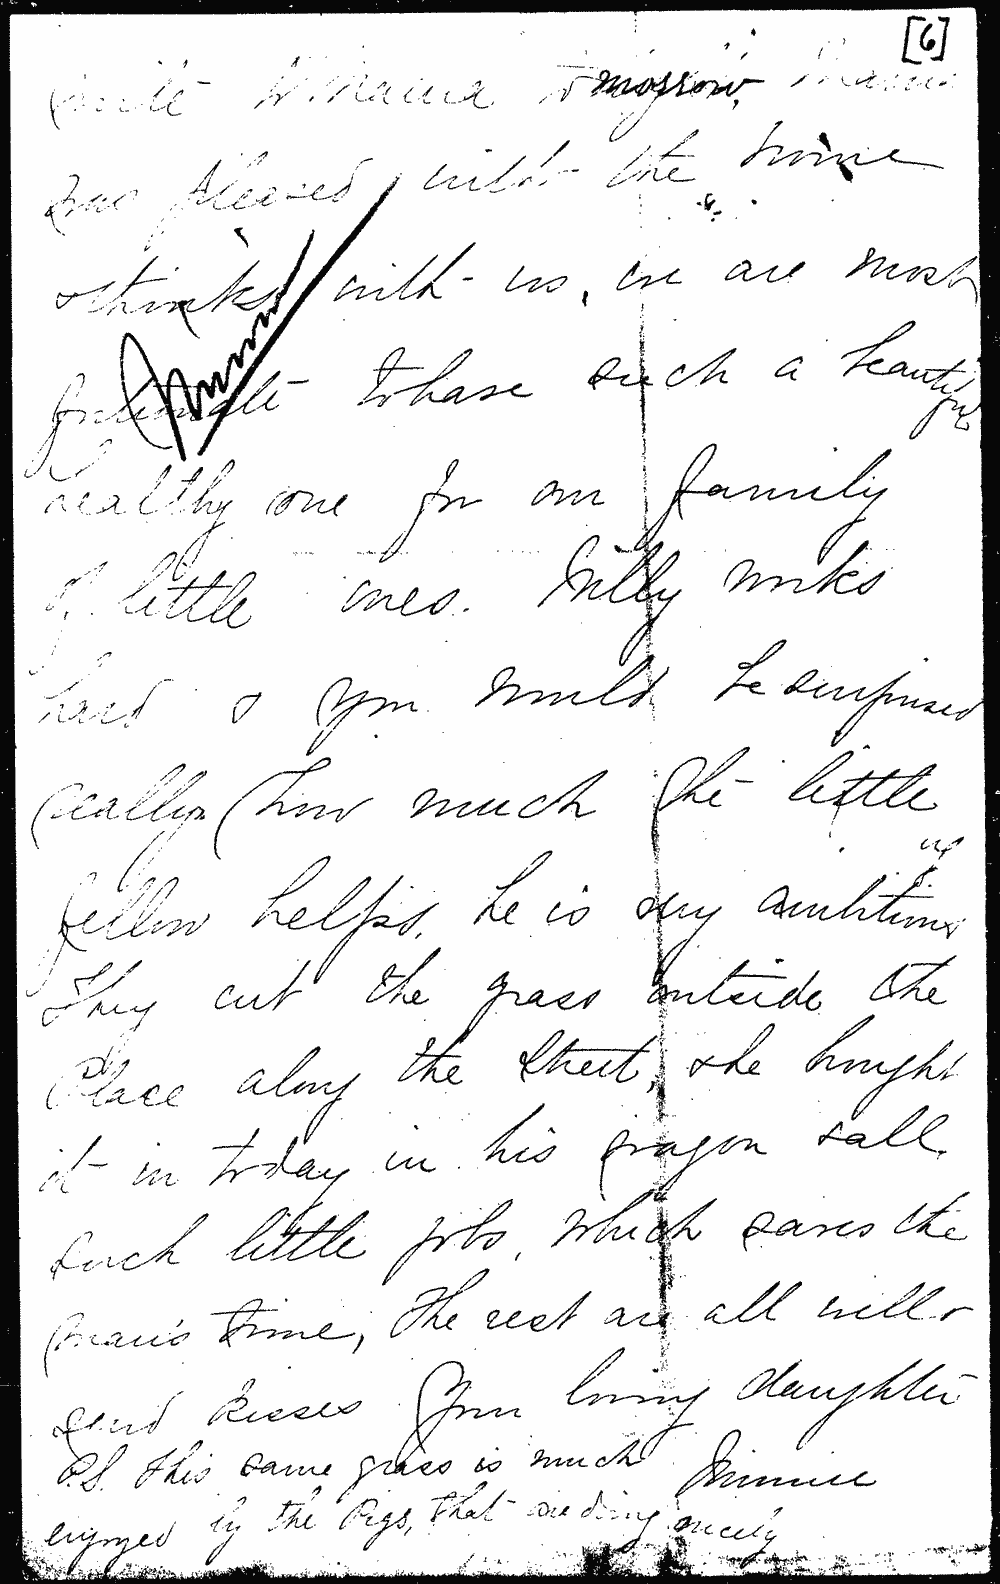 [6]
write to Mama tomorrow, Mama
was pleased with the home
& thinks with us, we are most
fortunate to have such a beautiful
healthy one for our family
of little ones. Willy works
hard & you would be surprised
really how much the little
fellow helps. he is very ambitious
They cut the grass outside the
Place along the Street, & he brought
it in today in his wagon & all
such little jobs, which saves the
man's time, The rest are all well &
send kisses Your loving daughter
P.S. this same grass is much Minnie
enjoyed by the Pigs, that are doing nicely